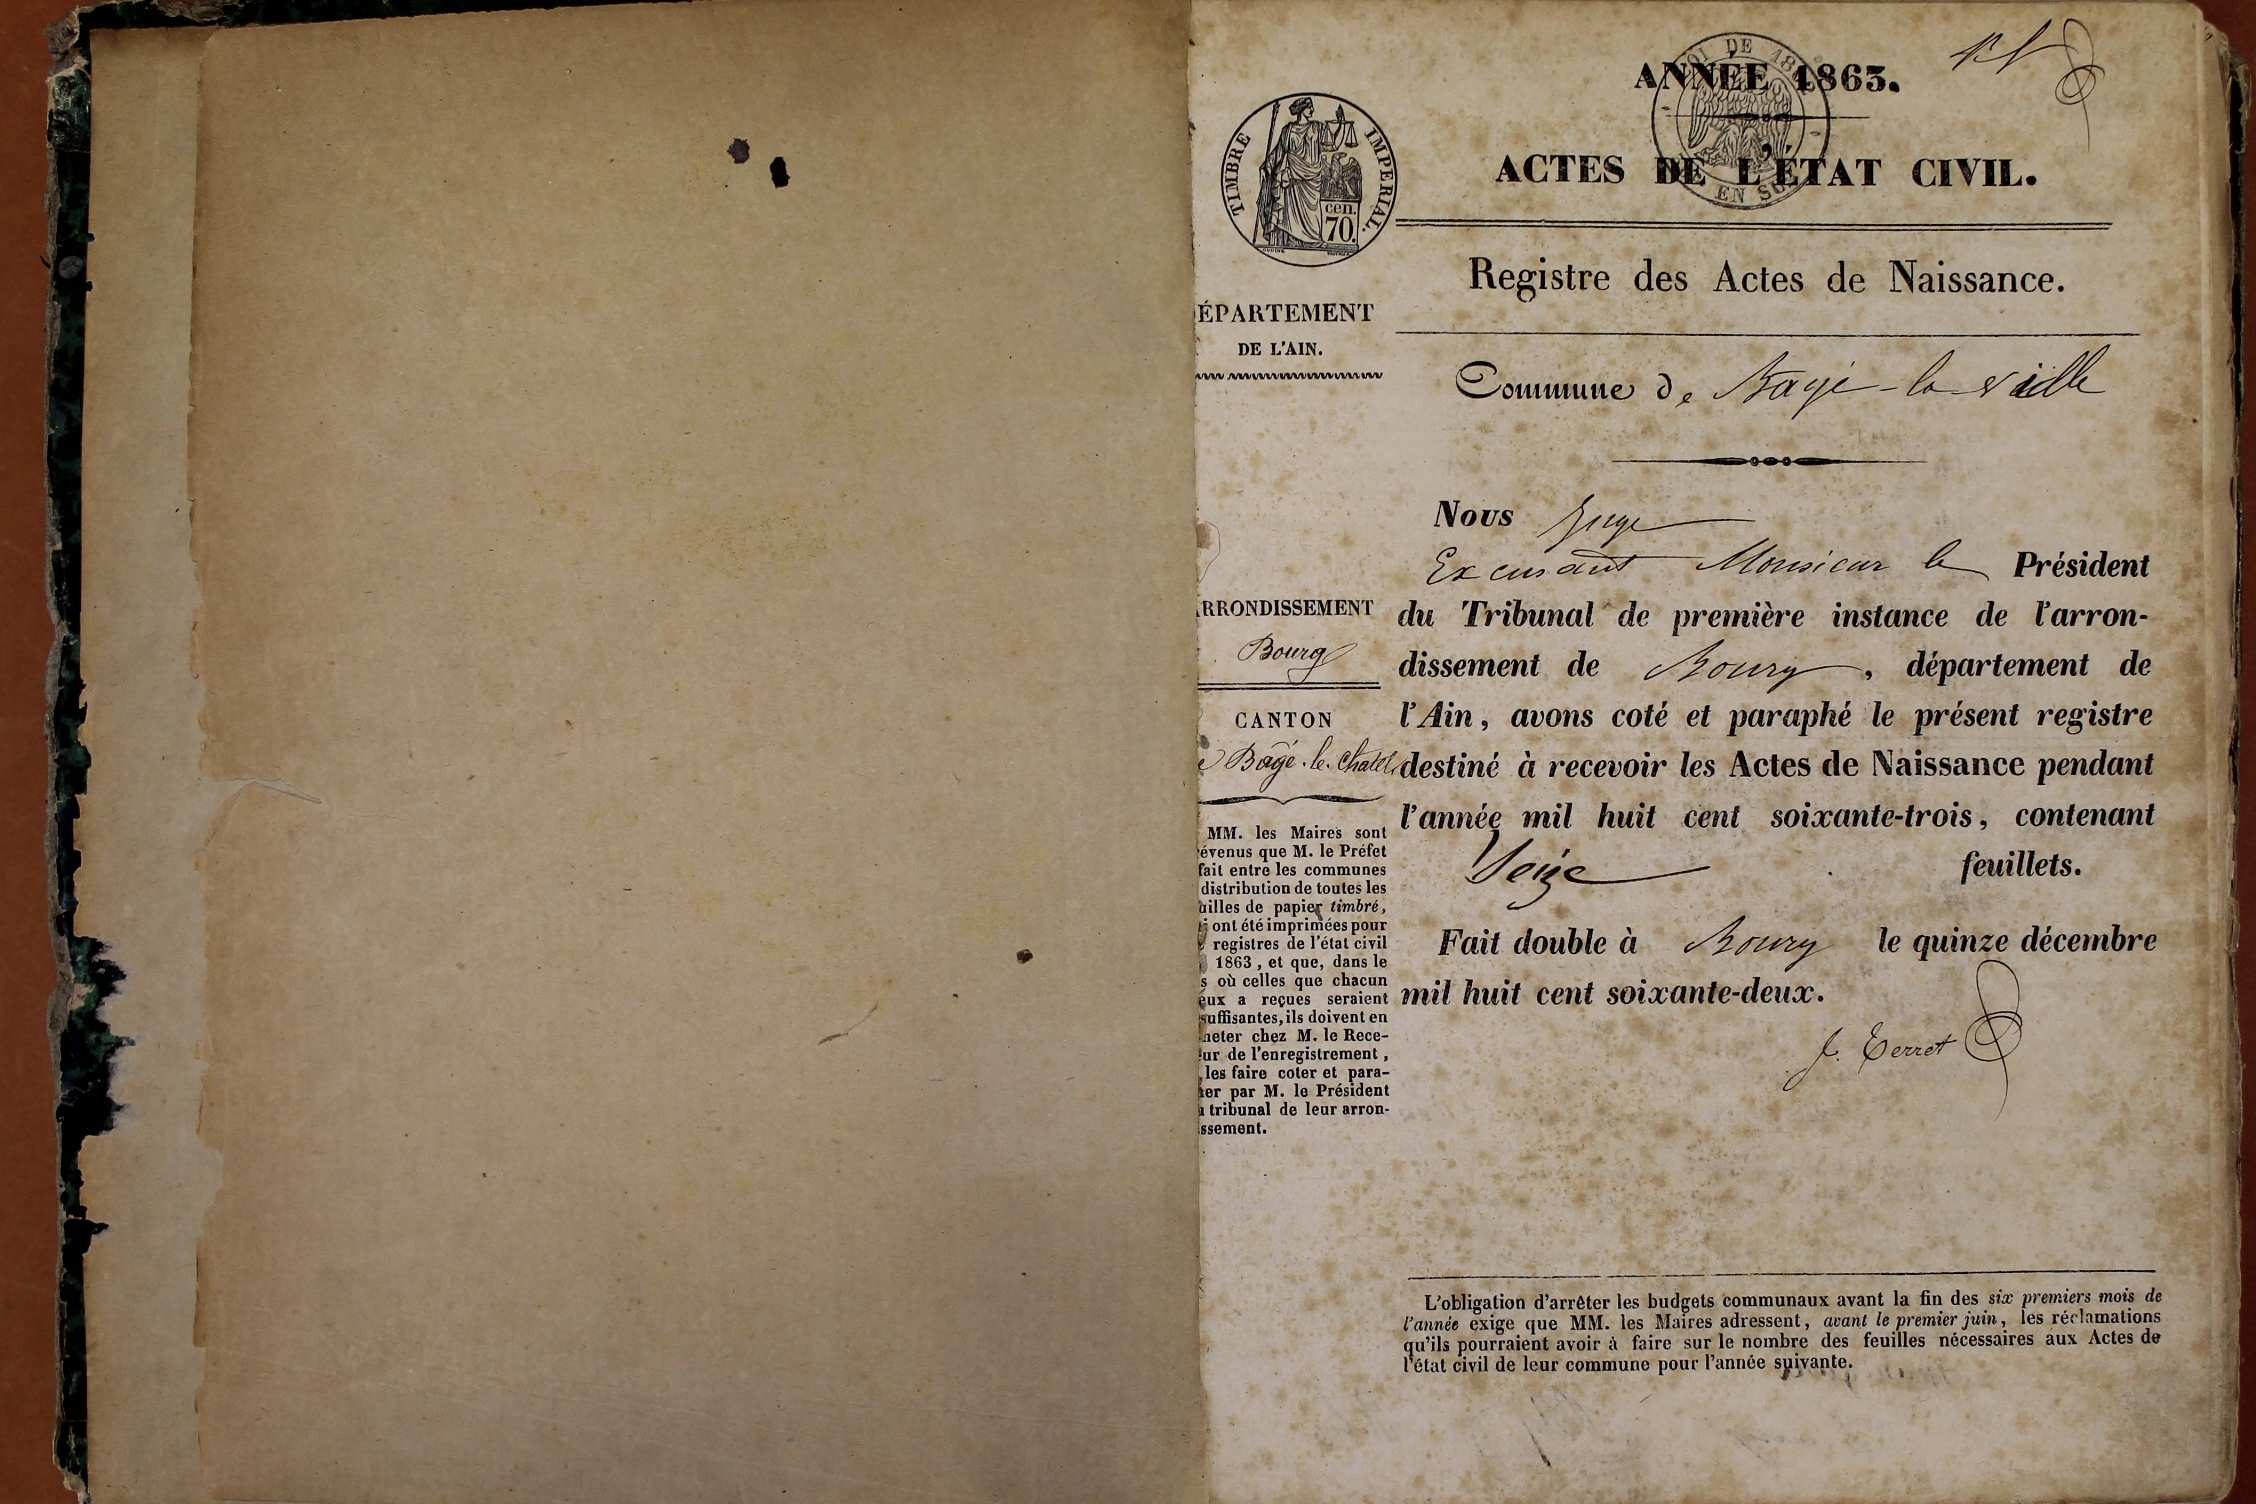 ANNÉE 1863.
TIMBRE IMPERIAL.
cen.
70.
LOI DE
EN SUS
ACTES DE L'ÉTAT CIVIL.
Registre des Actes de Naissance.
ÉPARTEMENT
DE L'AIN.
Commune de Bagé-la-ville
Nous Juge
Excusant Monsieur le Président
du Tribunal de première instance de l'arron-
dissement de Bourg, département de
l'Ain, avons coté et paraphé le présent registre
destiné à recevoir les Actes de Naissance pendant
l'année mil huit cent soixante-trois, contenant
Seize feuillets.
Fait double à Bourg le quinze décembre
mil huit cent soixante-deux.
J. Terret
RRONDISSEMENT
Bourg
CANTON
Bagé-le-Chatel
MM. les Maires sont
évenus que M. le Préfet
fait entre les communes
distribution de toutes les
uilles de papier timbré,
i ont été imprimées pour
registres de l'état civil
1863, et que, dans le
s où celles que chacun
eux a reçues seraient
suffisantes, ils doivent en
heter chez M. le Rece-
ur de l'enregistrement,
les faire coter et para-
her par M. le Président
u tribunal de leur arron-
ssement.
L'obligation d'arrêter les budgets communaux avant la fin des six premiers mois de
l'année exige que MM. les Maires adressent, avant le premier juin, les réclamations
qu'ils pourraient avoir à faire sur le nombre des feuilles nécessaires aux Actes de
l'état civil de leur commune pour l'année suivante.